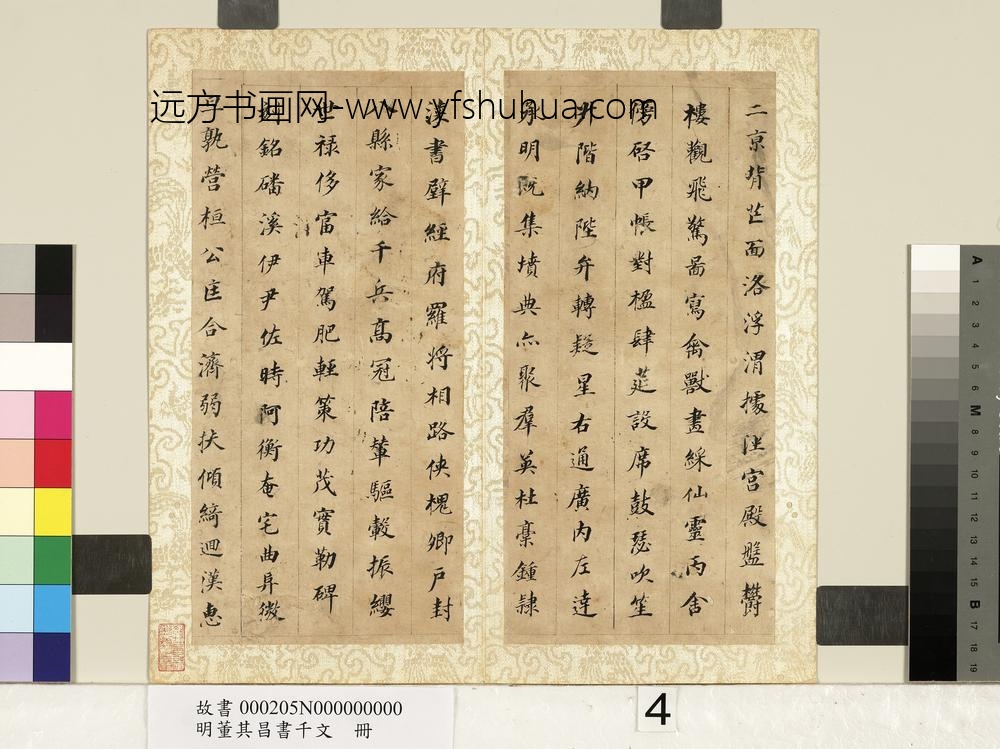 远方书画网-www.yfshuhua.com
二京背芒面洛浮渭據涇宮殿盤欝
樓觀飛驚啚寫禽獸畫綵仙靈丙舍
傍啓甲帳對楹肆筵設席鼓瑟吹笙
升階納陛弁轉疑星右通廣內左達
承明既集墳典亦聚羣英杜稾鍾隸
漆書壁經府羅將相路俠槐卿戶封
八縣家給千兵高冠陪輦驅轂振纓
世祿侈富車駕肥輕策功茂實勒碑
刻銘磻溪伊尹佐時阿衡奄宅曲阜微
旦孰營桓公匡合濟弱扶傾綺迴漢惠
故書 000205N000000000
明董其昌書千文 冊
4
A 1 2 3 4 5 6 M 8 9 10 11 12 13 14 15 B 17 18 19